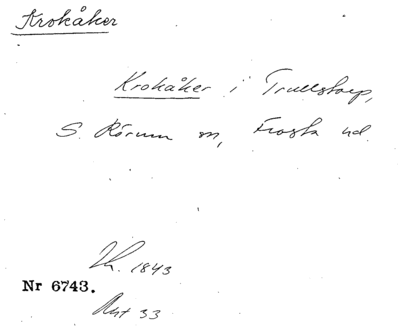 Krokåker
Krokåker i Trullstorp,
S. Rörum sn, Frosta hd.
Lh. 1843
Nr 6743.
Ant 33